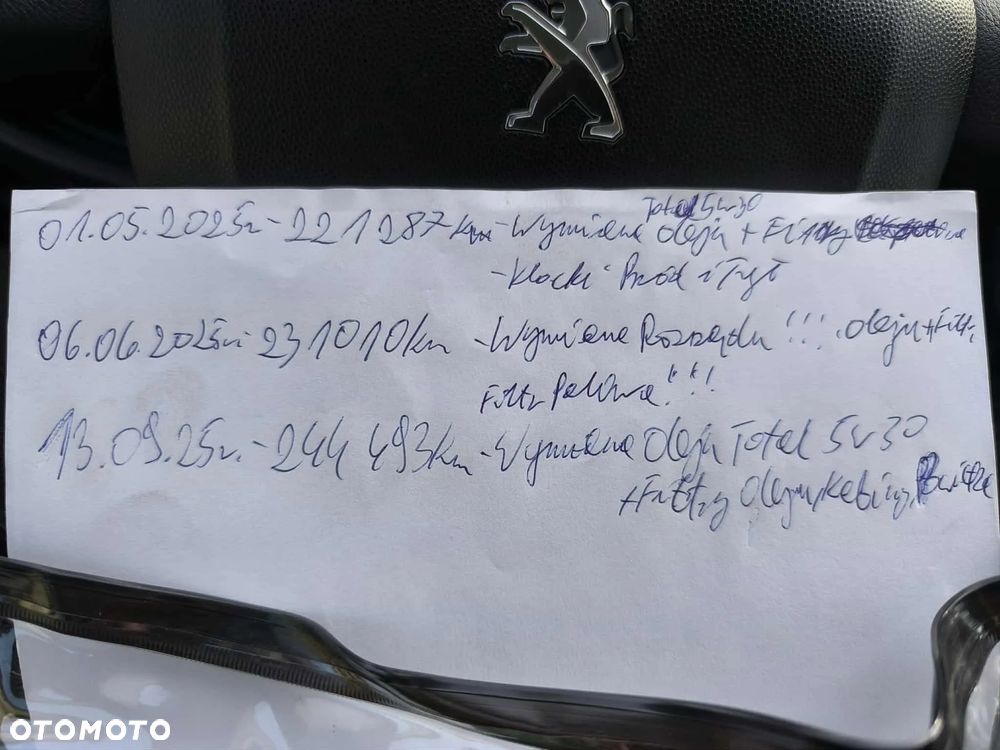 Total 5w30
01.05.2025r - 221287km - Wymiana oleju + Filtry
- Klocki Przód i Tył
06.06.2025r - 231010km - Wymiana Rozrządu!!! Oleju + Filtr,
Filtr Paliwa!!!
13.09.25r. - 244493km - Wymiana Oleju Total 5w30
+ Filtry Oleju, Kabiny,
OTOMOTO